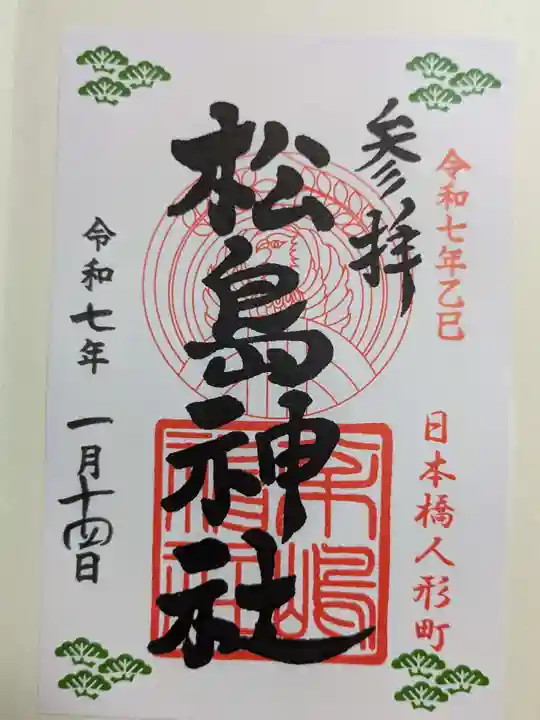 令和七年乙巳
日本橋人形町
参拝
松島神社
令和七年 一月十四日